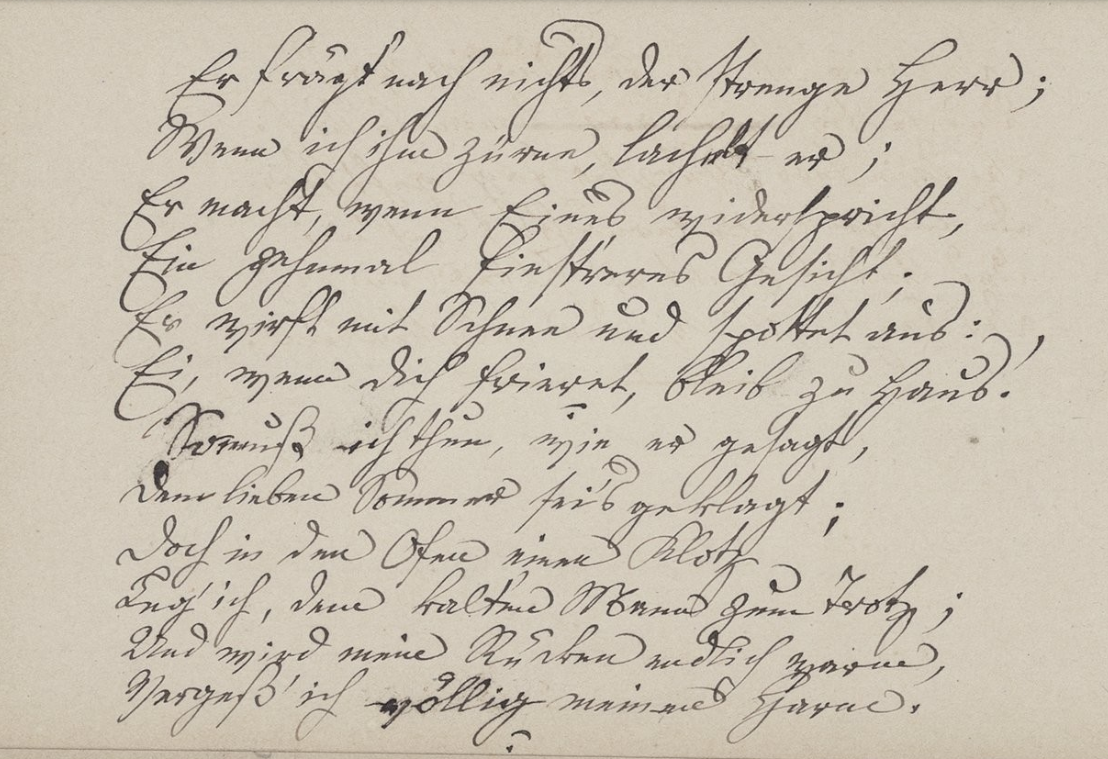 Er frägt nach nichts, der strenge Herr;
Wenn ich ihm zürne, lachet er;
Er macht, wenn Eines widerspricht,
Ein zehnmal finstreres Gesicht.
Er wirft mit Schnee und spottet aus:
Ei, wenn dich frieret, bleib zu Haus!
So muß ich thun, wie er gesagt,
Dem lieben Sommer sei's geklagt;
Doch in den Ofen einen Klotz
Leg' ich, dem kalten Mann zum Trotz;
Und wird mein Rücken endlich warm,
Vergeß' ich völlig meinen Harm.